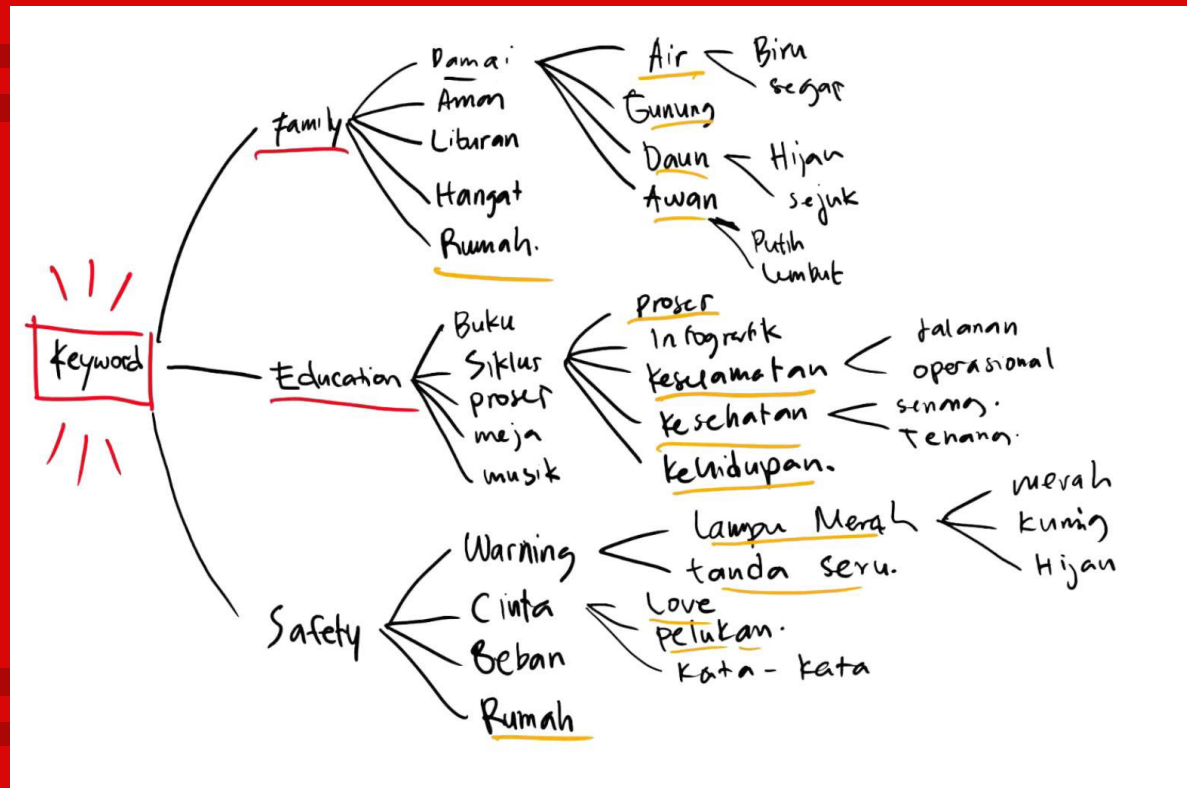 Keyword
Family
Damai
Aman
Liburan
Hangat
Rumah.
Air
Biru
segar
Gunung
Daun
Hijau
sejuk
Awan
Putih
Lembut
Education
Buku
Siklus
proses
meja
musik
proses
Infografik
Keselamatan
Jalanan
operasional
Kesehatan
senang.
Tenang.
Kehidupan.
Safety
Warning
Lampu Merah
merah
Kuning
Hijau
tanda seru.
Cinta
Love
pelukan.
Kata - kata
Beban
Rumah